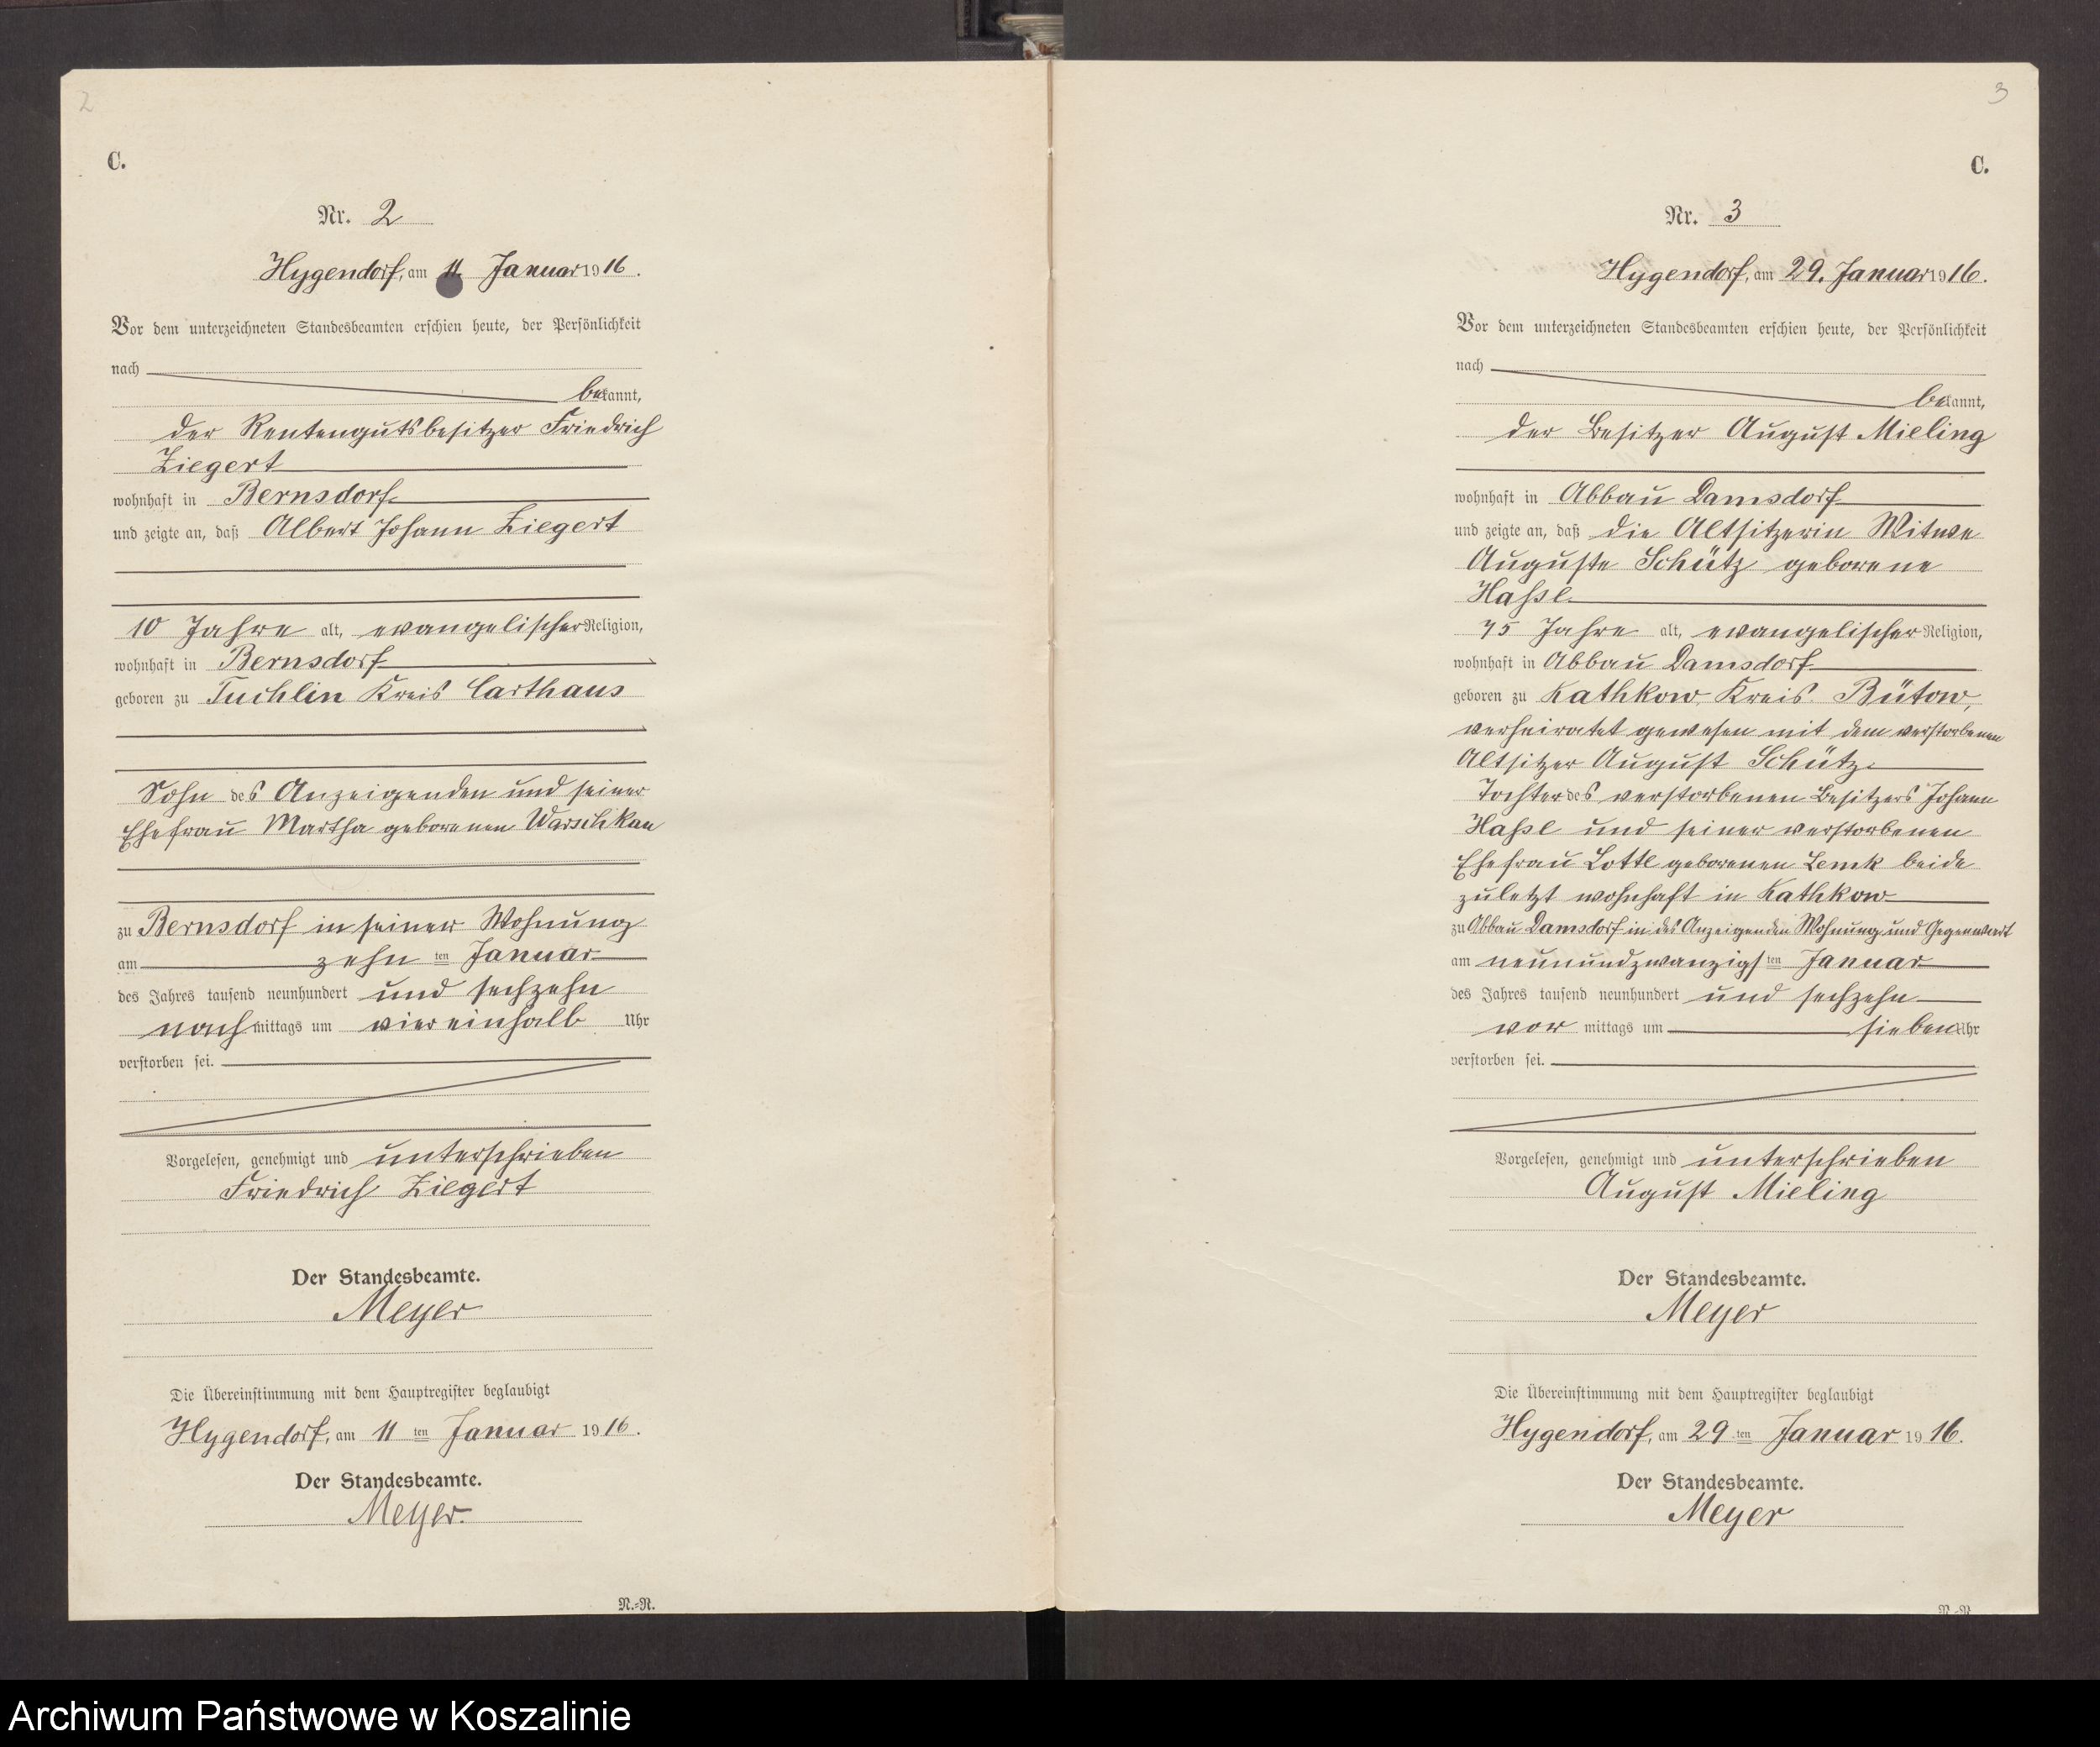 2
C.
Nr. 2
Hygendorf, am 11. Januar 1916.
Vor dem unterzeichneten Standesbeamten erschien heute, der Persönlichkeit
nach
bekannt,
der Rentengutsbesitzer Friedrich
Ziegert
wohnhaft in Bernsdorf
und zeigte an, daß Albert Johann Ziegert
10 Jahre alt, evangelischer Religion,
wohnhaft in Bernsdorf
geboren zu Tuchlin Kreis Carthaus
Sohn des Anzeigenden und seiner
Ehefrau Martha geborenen Warschkau
zu Bernsdorf in seiner Wohnung
am zehnten Januar
des Jahres tausend neunhundert und sechzehn
nachmittags um viereinhalb Uhr
verstorben sei.
Vorgelesen, genehmigt und unterschrieben
Friedrich Ziegert
Der Standesbeamte.
Meyer
Die Übereinstimmung mit dem Hauptregister beglaubigt
Hygendorf, am 11ten Januar 1916.
Der Standesbeamte.
Meyer.
N.-N.
3
C.
Nr. 3
Hygendorf, am 29. Januar 1916.
Vor dem unterzeichneten Standesbeamten erschien heute, der Persönlichkeit
nach
bekannt,
der Besitzer August Mieling
wohnhaft in Abbau Damsdorf
und zeigte an, daß die Altsitzerin Witwe
Auguste Schütz geborene
Haßl
75 Jahre alt, evangelischer Religion,
wohnhaft in Abbau Damsdorf
geboren zu Kathkow, Kreis Bütow,
verheiratet gewesen mit dem verstorbenen
Altsitzer August Schütz.
Tochter des verstorbenen Besitzers Johann
Haßl und seiner verstorbenen
Ehefrau Lotte geborenen Lemk beide
zuletzt wohnhaft in Kathkow
zu Abbau Damsdorf in des Anzeigenden Wohnung und Gegenwart
am neunundzwanzigsten Januar
des Jahres tausend neunhundert und sechzehn
vor mittags um sieben Uhr
verstorben sei.
Vorgelesen, genehmigt und unterschrieben
August Mieling
Der Standesbeamte.
Meyer
Die Übereinstimmung mit dem Hauptregister beglaubigt
Hygendorf, am 29ten Januar 1916.
Der Standesbeamte.
Meyer
N.-N.
Archiwum Państwowe w Koszalinie